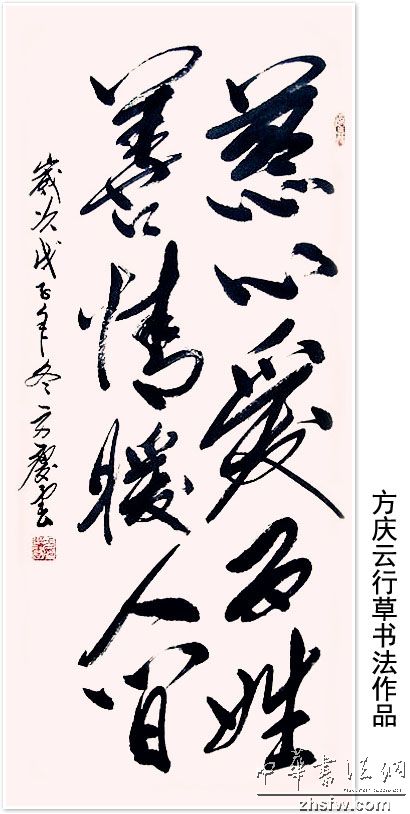 慈心爱百姓
善情暖人间
岁次戊子年冬方庆云
方庆云行草书法作品
中华书法网
zhsfw.com